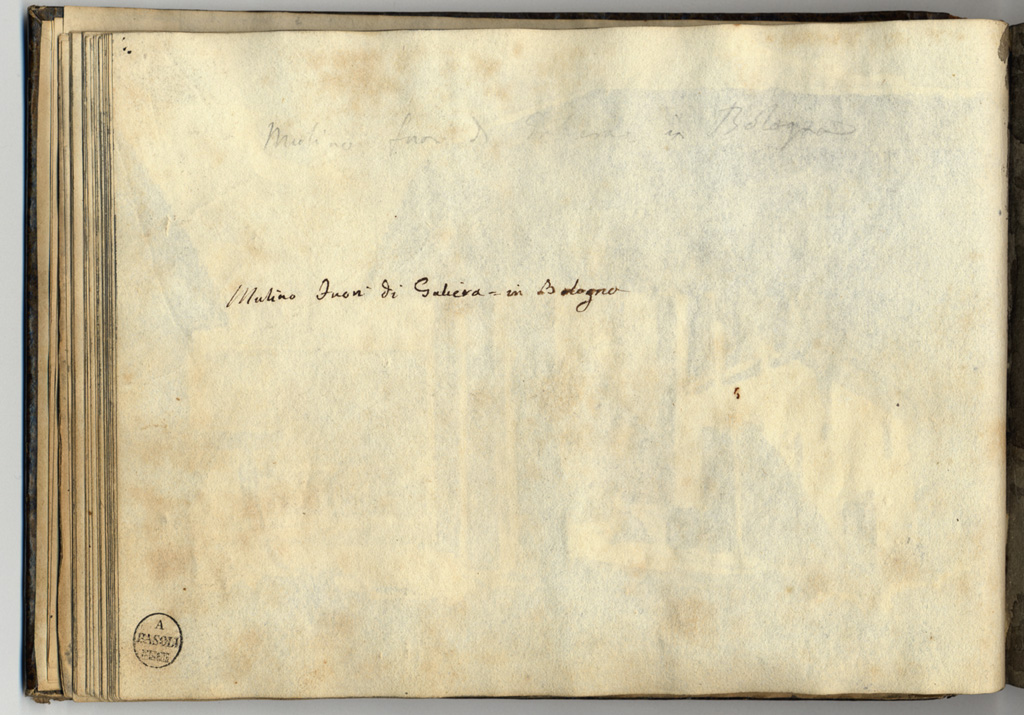 Mulino fuori di Galiera in Bologna
Mulino Fuori di Galiera = in Bologna
A
BASOLI